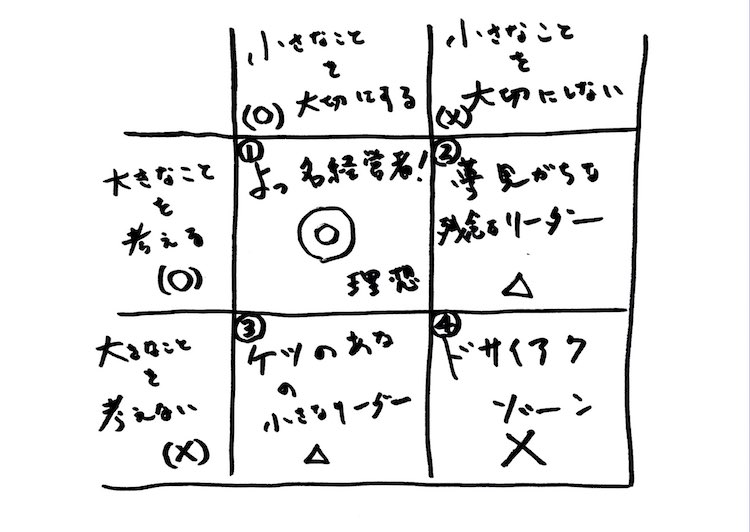 小さなこと
を
大切にする
(○)
小さなこと
を
大切にしない
(×)
大きなこと
を
考える
(○)
①
よっ 名経営者!
◎
理想
②
夢見がちな
残念なリーダー
△
大きなこと
を
考えない
(×)
③
ケツのあな
の
小さなリーダー
△
④
ドサイアク
ゾーン
×